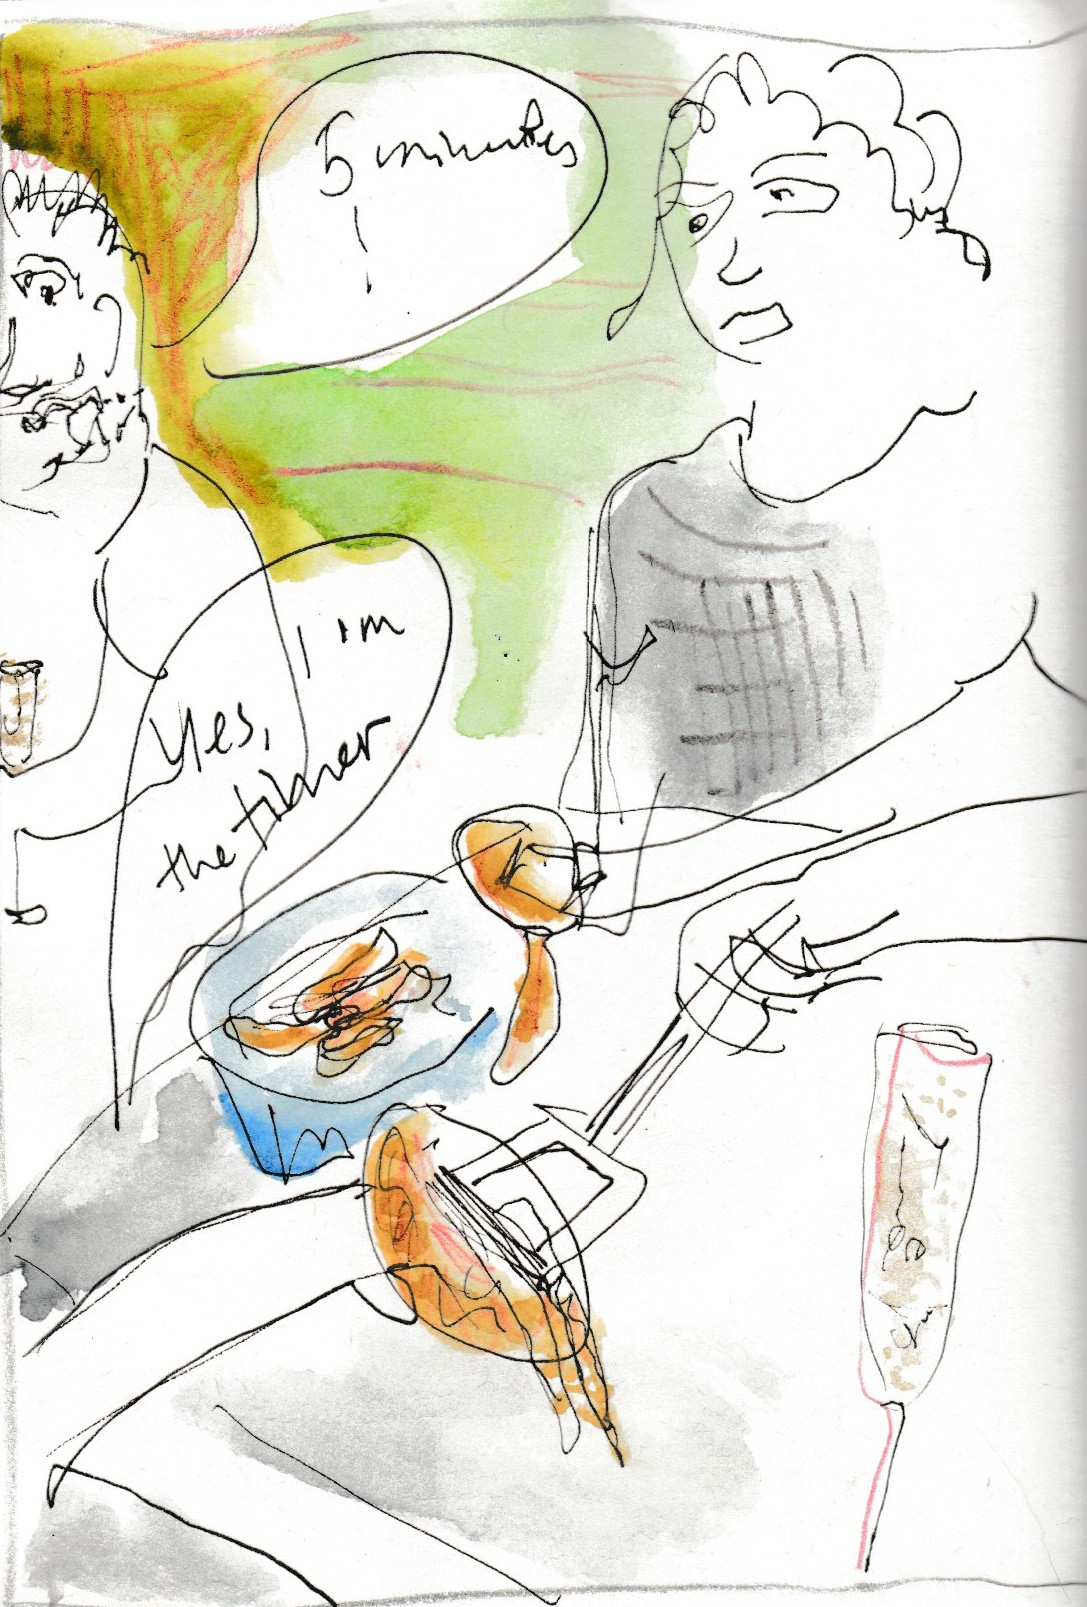 5 minutes
!
Yes, I'm
the timer